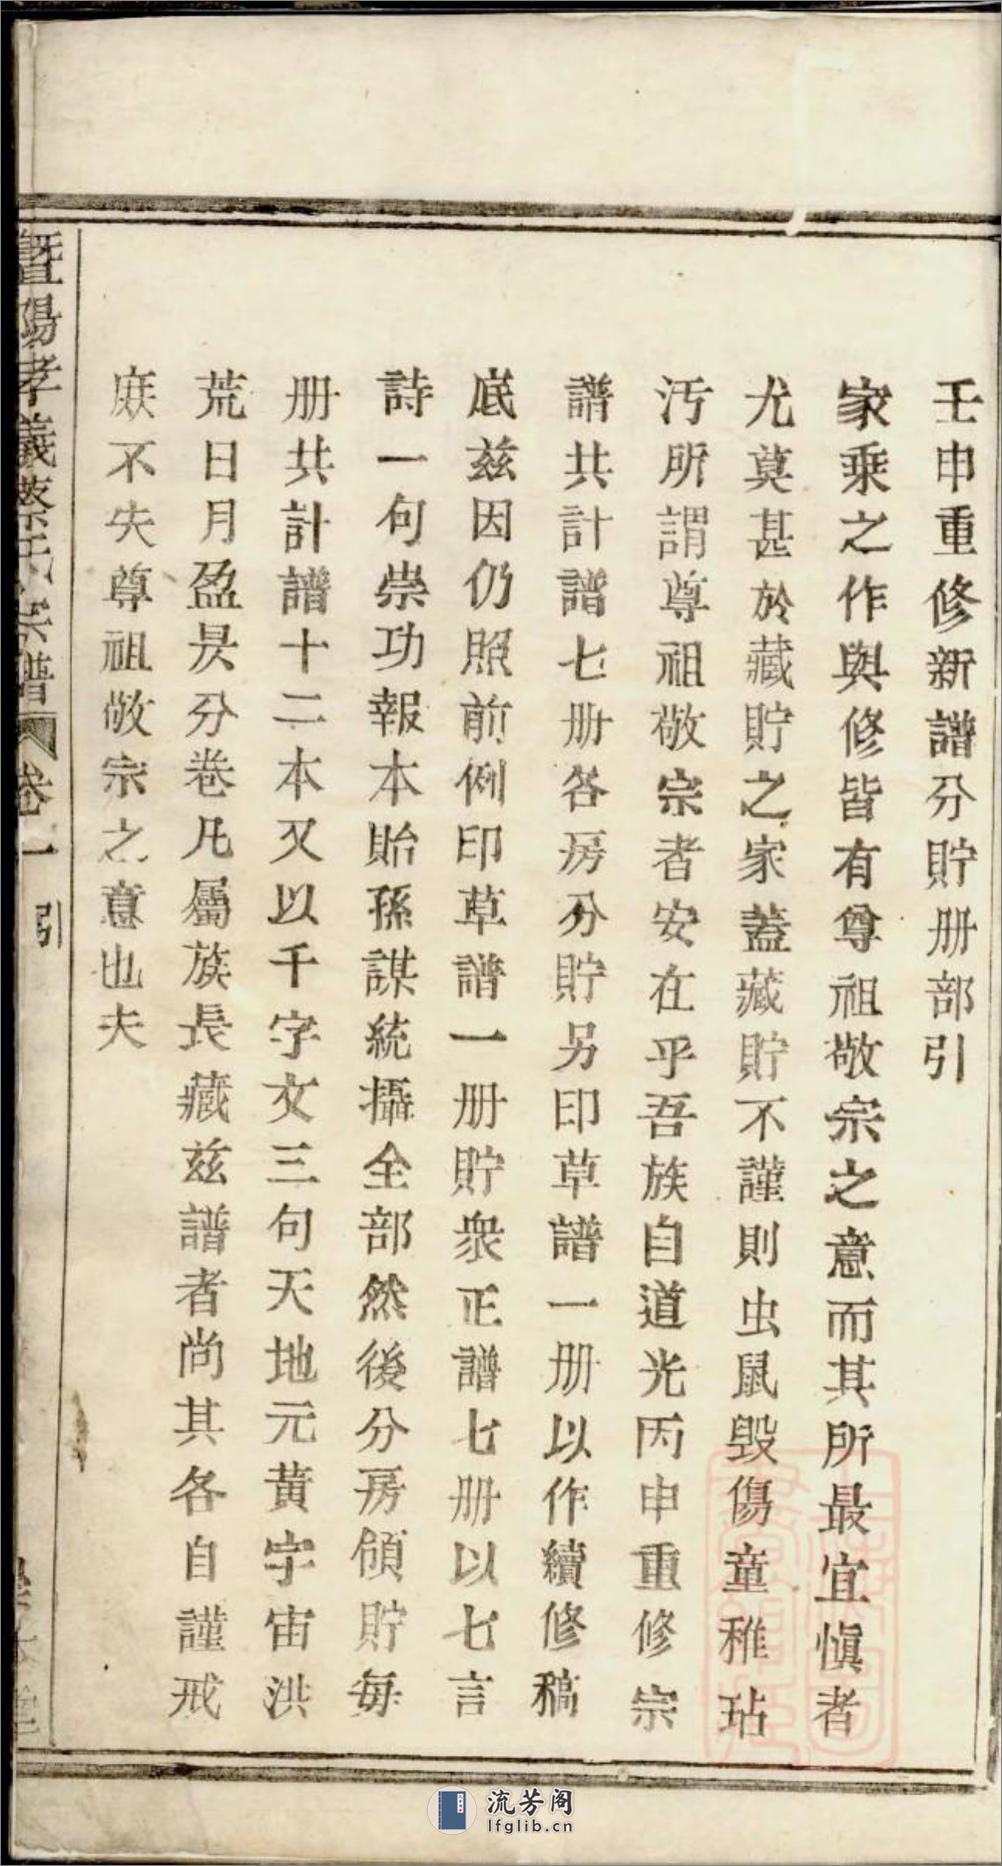 壬申重修新譜分貯册部引
家乘之作與修皆有尊祖敬宗之意而其所最宜愼者
尤莫甚於藏貯之家蓋藏貯不謹則虫鼠毁傷童稚玷
汚所謂尊祖敬宗者安在乎吾族自道光丙申重修宗
譜共計譜七册各房分貯另印草譜一册以作續修稿
底兹因仍照前例印草譜一册貯衆正譜七册以七言
詩一句崇功報本貽孫謀統攝全部然後分房領貯每
册共計譜十二本又以千字文三句天地元黃宇宙洪
荒日月盈昃分卷凡屬族長藏兹譜者尚其各自謹戒
庶不失尊祖敬宗之意也夫
暨陽孝義蔡氏宗譜 卷一 引
流芳阁
lfglib.cn